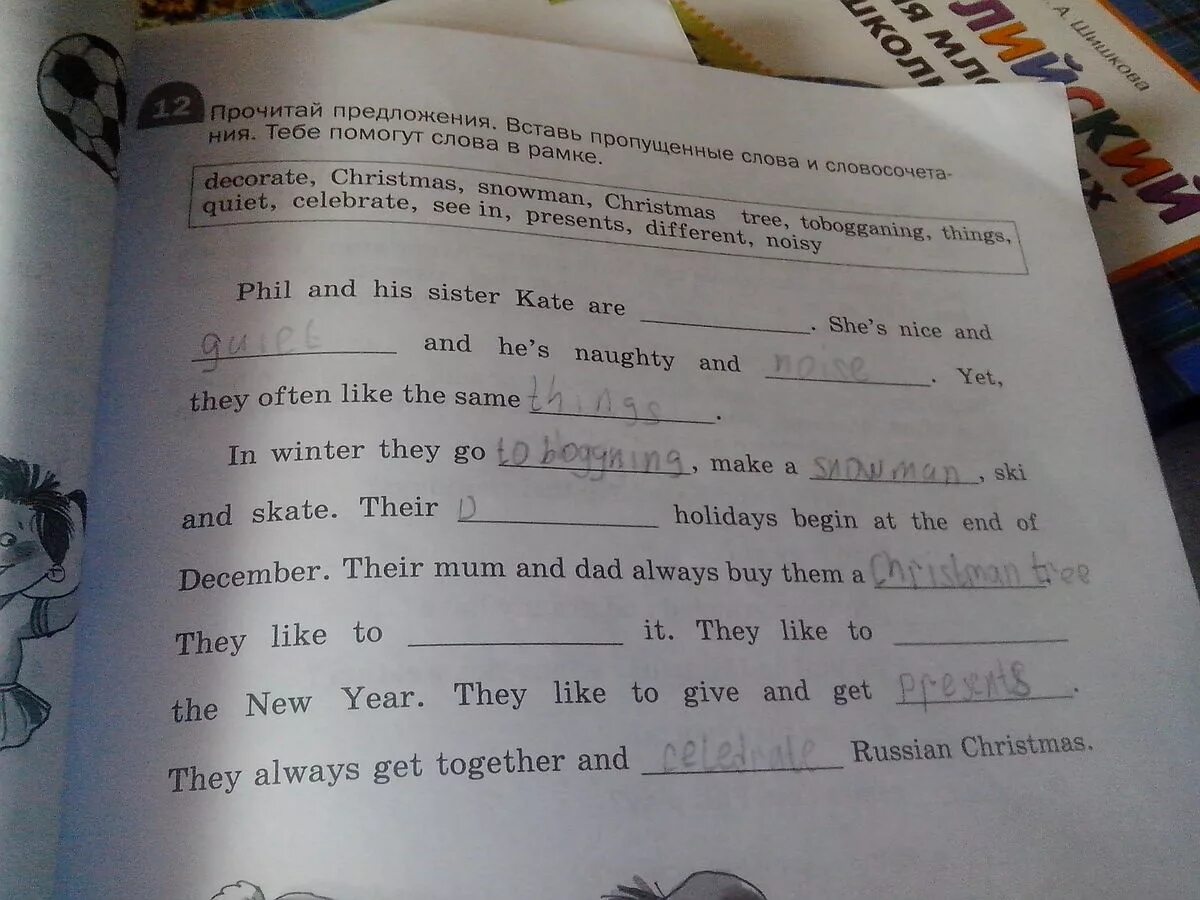 А. Шишкова
ЛИЙСКИЙ
ШКОЛЬ
12 Прочитай предложения. Вставь пропущенные слова и словосочета-
ния. Тебе помогут слова в рамке.
decorate, Christmas, snowman, Christmas tree, tobogganing, things,
quiet, celebrate, see in, presents, different, noisy
Phil and his sister Kate are ____________. She's nice and
quiet and he's naughty and noise. Yet,
they often like the same things.
In winter they go toboggning, make a snowman, ski
and skate. Their D____________ holidays begin at the end of
December. Their mum and dad always buy them a Christman tree.
They like to ____________ it. They like to ____________
the New Year. They like to give and get presents.
They always get together and celedrate Russian Christmas.